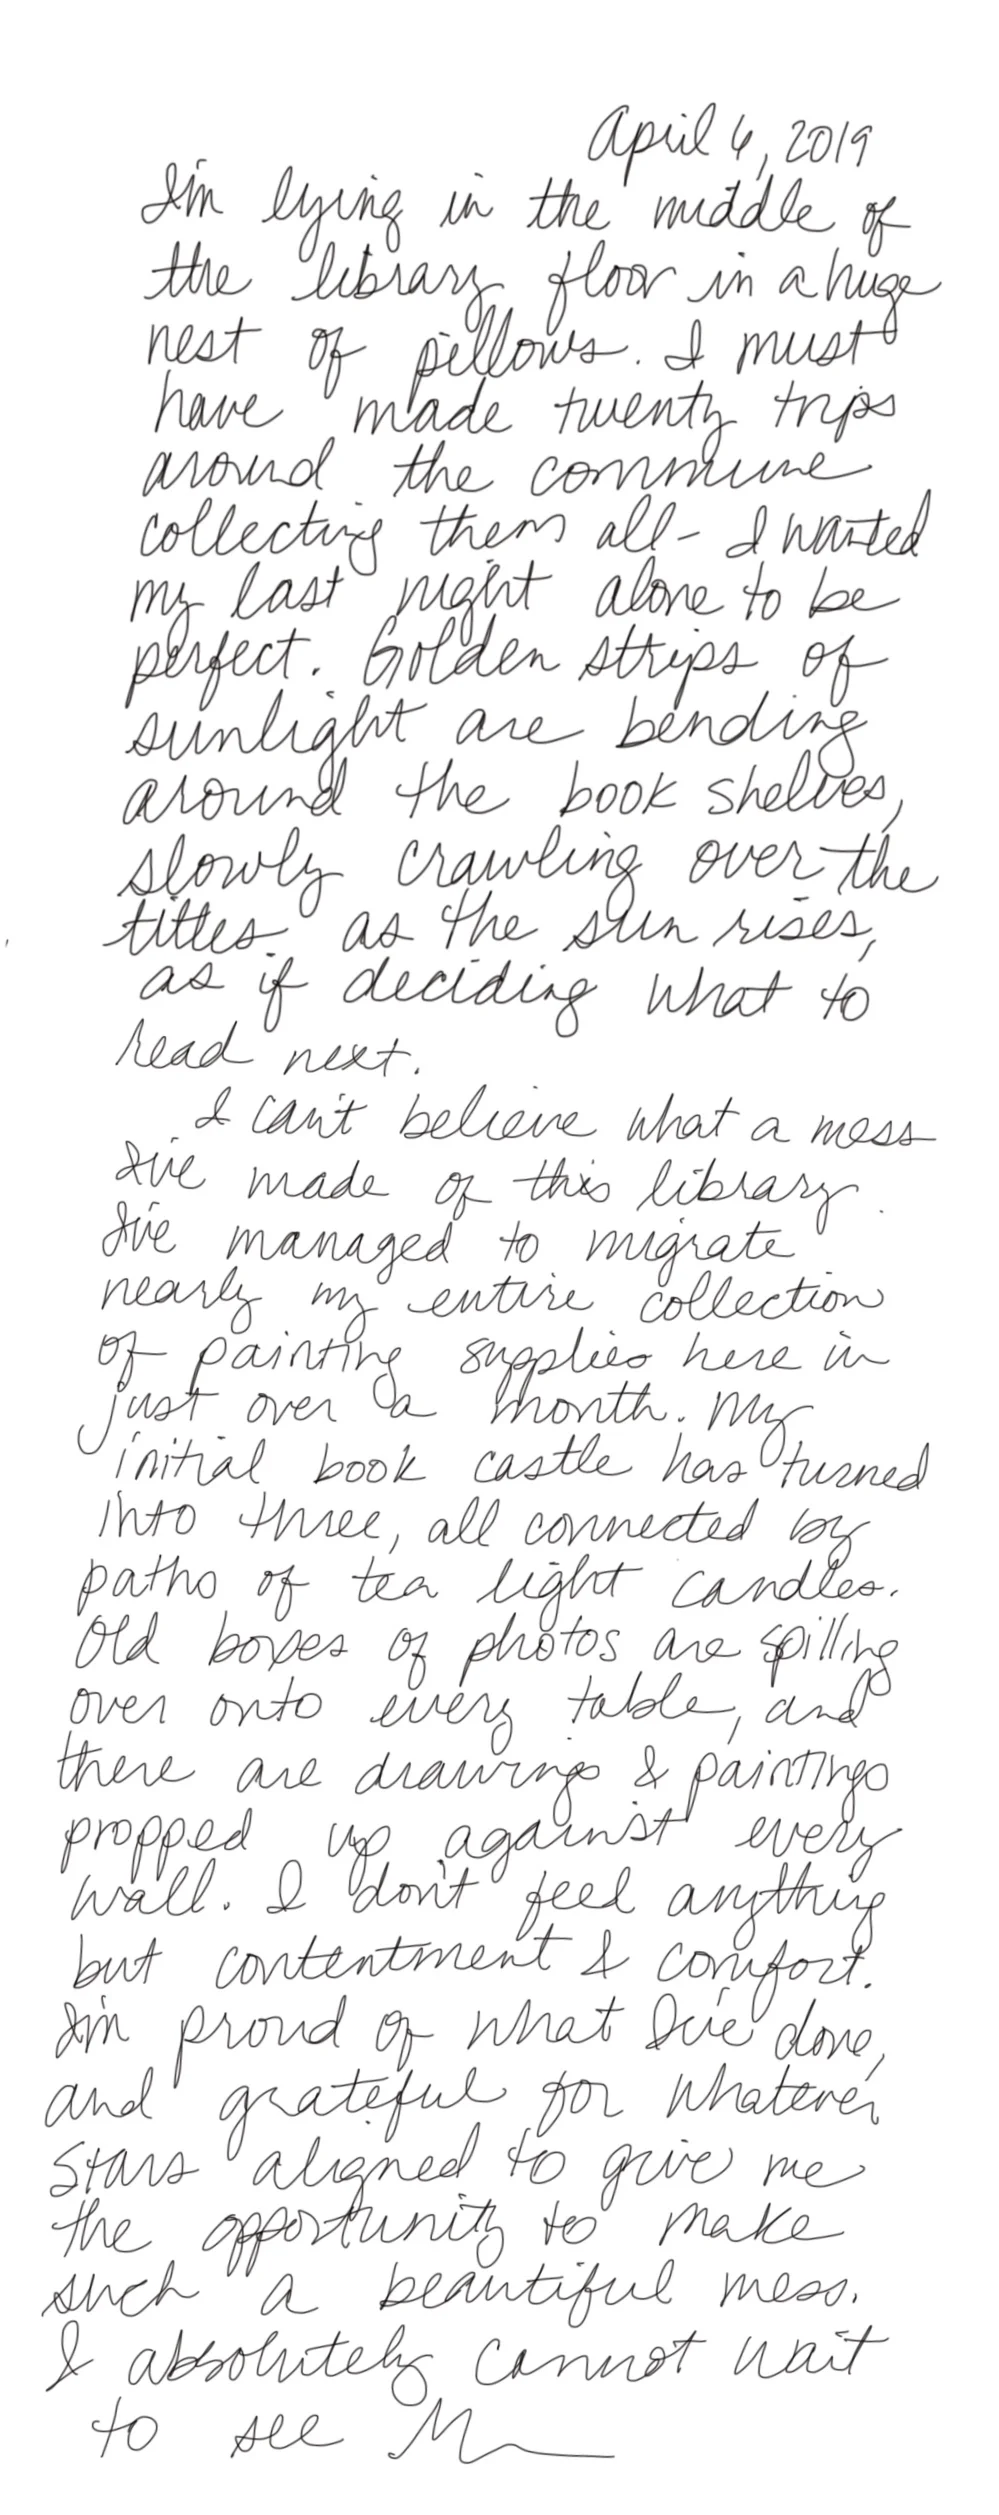 April 6, 2019
I'm lying in the middle of
the library floor in a huge
nest of pillows. I must
have made twenty trips
around the commune
collecting them all - I wanted
my last night alone to be
perfect. Golden strips of
sunlight are bending
around the book shelves,
slowly crawling over the
titles as the sun rises,
as if deciding what to
read next.
I can't believe what a mess
I've made of this library.
I've managed to migrate
nearly my entire collection
of painting supplies here in
just over a month. My
initial book castle has turned
into three, all connected by
paths of tea light candles.
Old boxes of photos are spilling
over onto every table, and
there are drawings & paintings
propped up against every
wall. I don't feel anything
but contentment & comfort.
I'm proud of what I've done,
and grateful for whatever
stars aligned to give me
the opportunity to make
such a beautiful mess.
I absolutely cannot wait
to see M